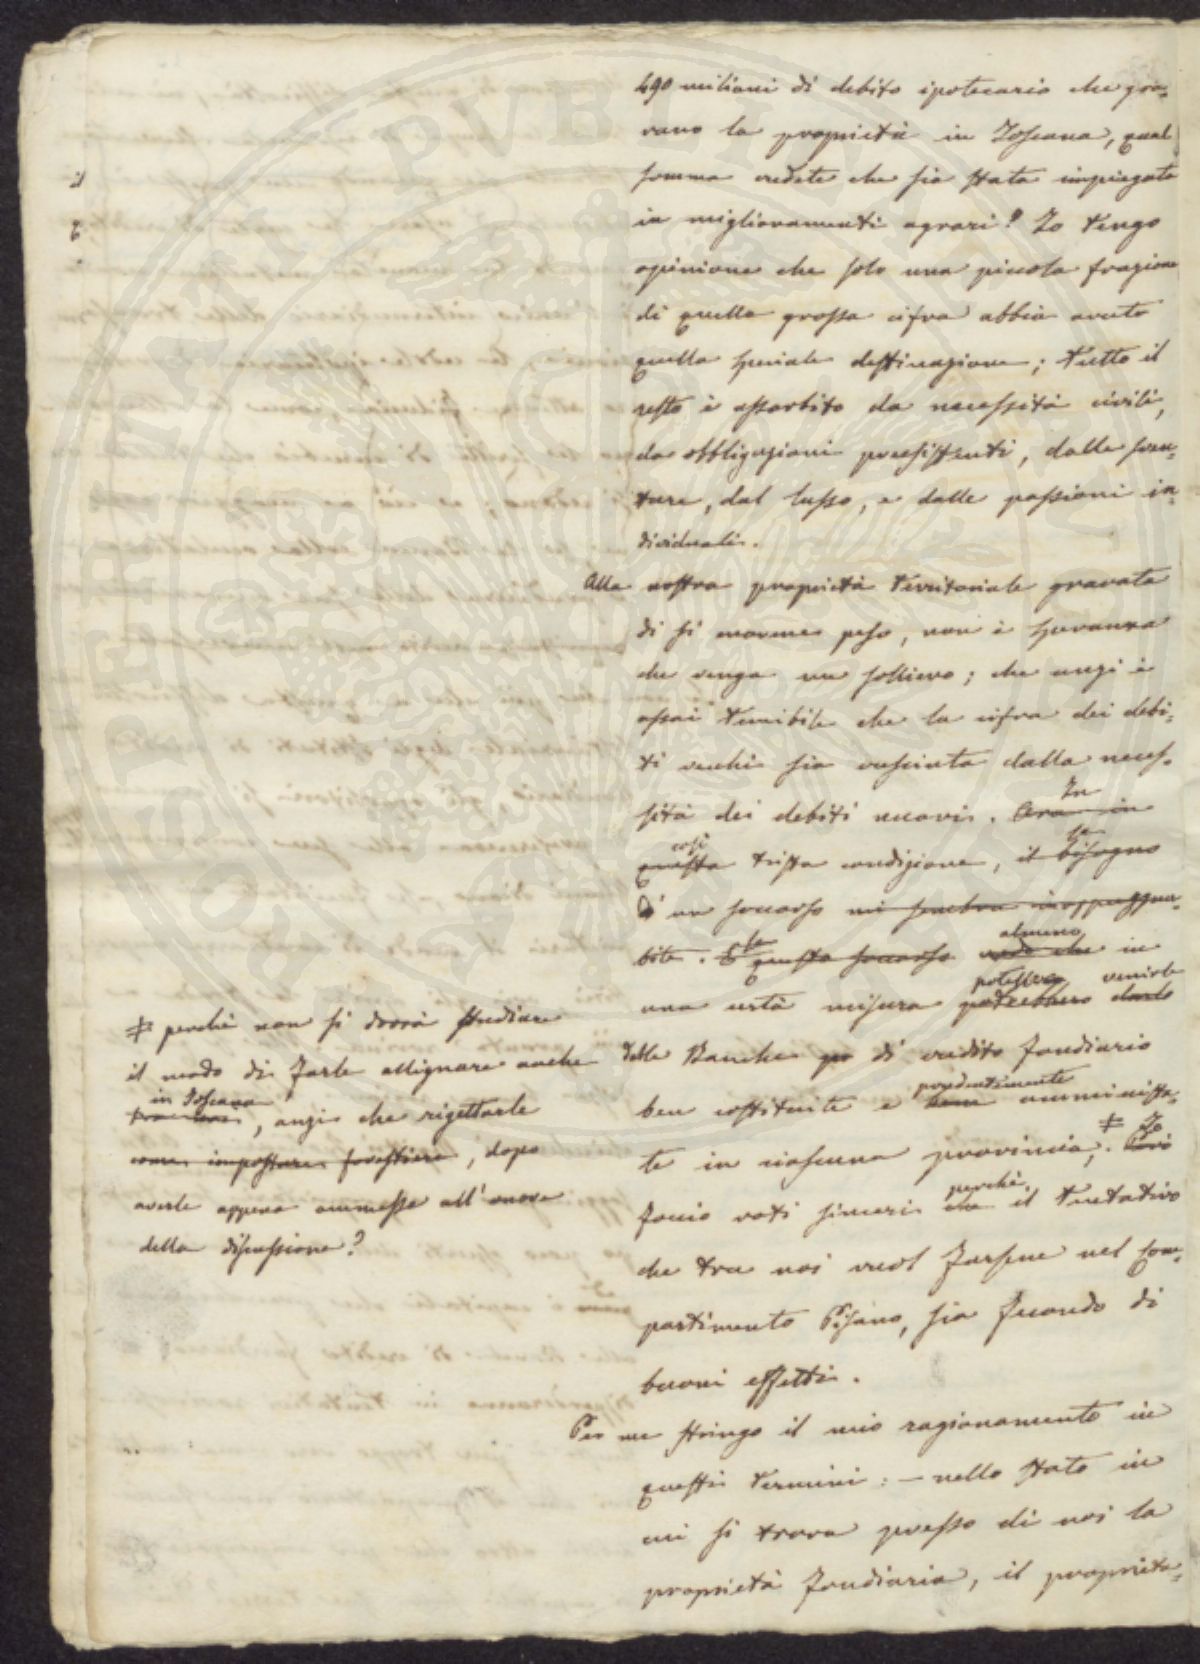 490 milioni di debito ipotecario che gra-
vano la proprietà in Toscana, qual
somma credete che sia stata impiegata
in miglioramenti agrari? Io tengo
opinione che solo una piccola frazione
di quella grossa cifra abbia avuto
quella speciale destinazione; tutto il
resto è assorbito da necessità civili,
da obbligazioni preesistenti, dalle sven-
ture, dal lusso, e dalle passioni in-
dividuali.
Alla nostra proprietà territoriale gravata
di sì enorme peso, non è speranza
che venga un sollievo; che anzi è
assai temibile che la cifra dei debi-
ti vecchi sia cresciuta dalla neces-
sità dei debiti nuovi. Ora in
In
questa trista condizione, il bisogno
così
se
d'un soccorso mi sembra inoppugna-
bile. E questo soccorso vedo che in
se
almeno
una certa misura potrebbero darlo
potesse
venirle
dalle Banche di credito fondiario
ben costituite e bene amministra-
prudentemente
te in ciascuna provincia; ‡ Però
Io
faccio voti sinceri che il tentativo
perché
che tra noi vuol farsene nel Com-
partimento Pisano, sia fecondo di
buoni effetti.
Per me stringo il mio ragionamento in
questi termini: — nello stato in
cui si trova presso di noi la
proprietà fondiaria, il proprieta-
‡ perché non si dovrà studiare
il modo di farle allignare anche
in Toscana
tra noi, anzi che rigettarle
come imposture forestiere, dopo
averle appena ammesse all'onore
della discussione?